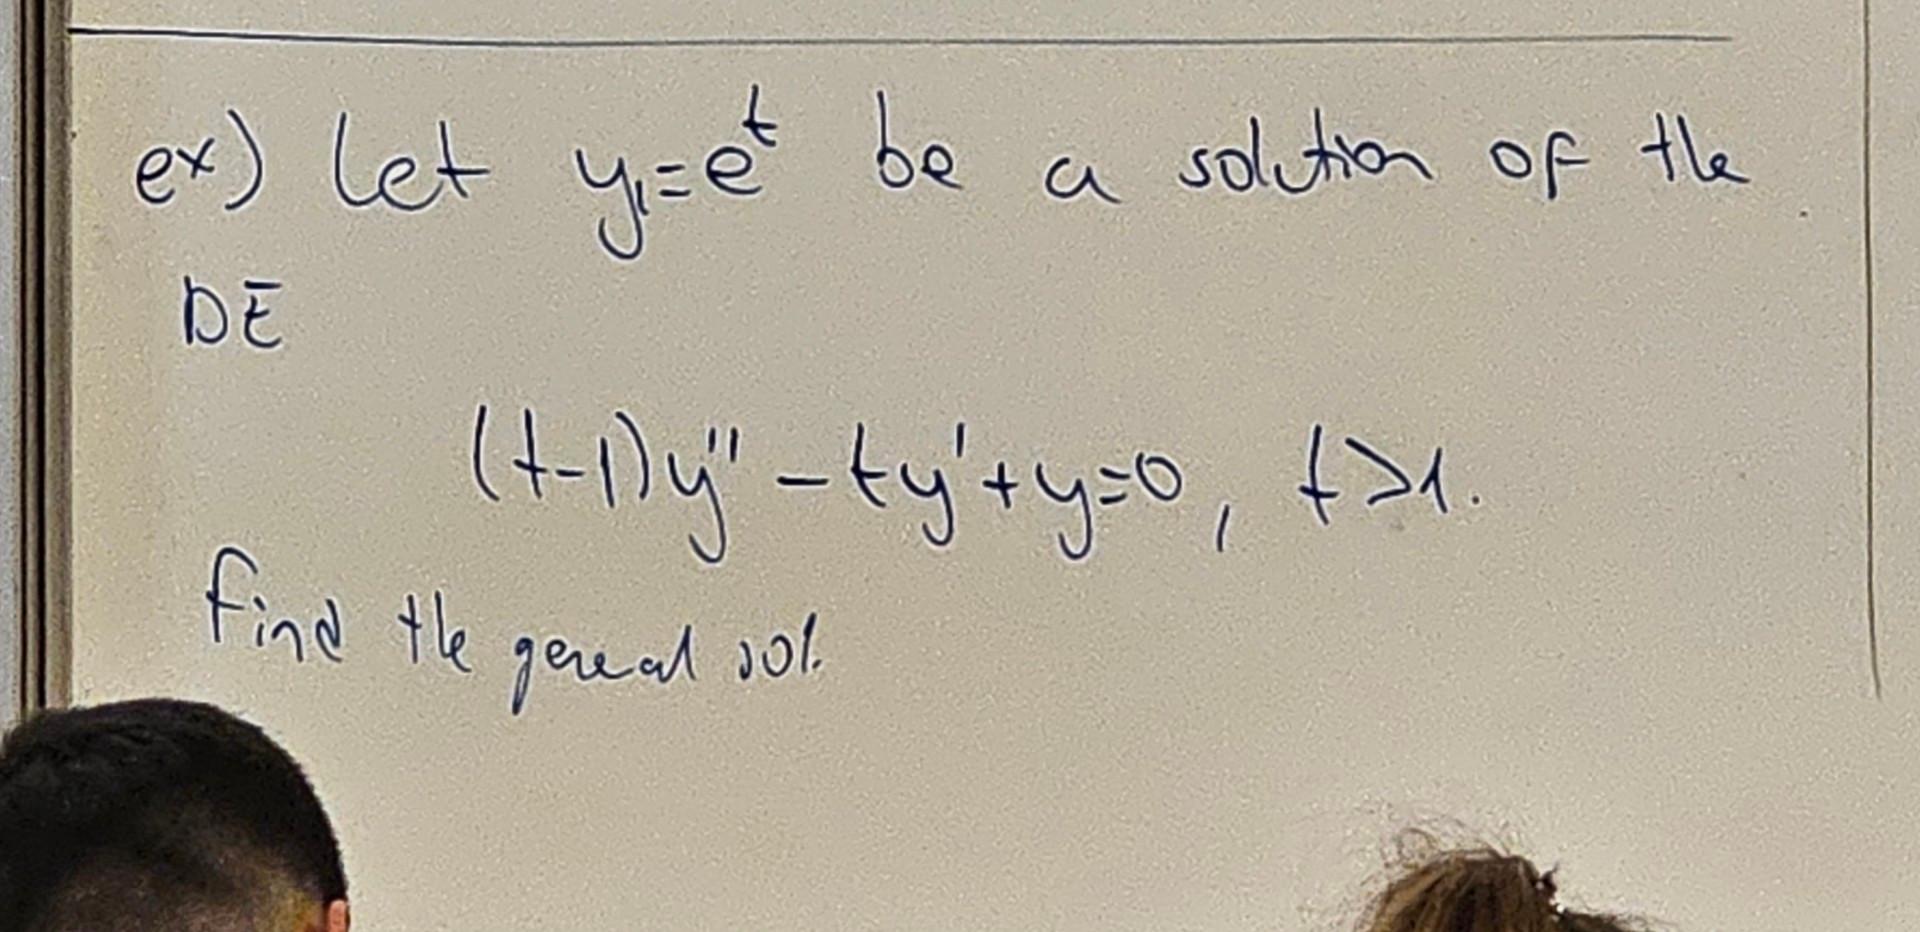 ex) Let y₁=eᵗ be a solution of the
DE
(t-1)y'' - ty' + y = 0, t>1.
Find the general sol.